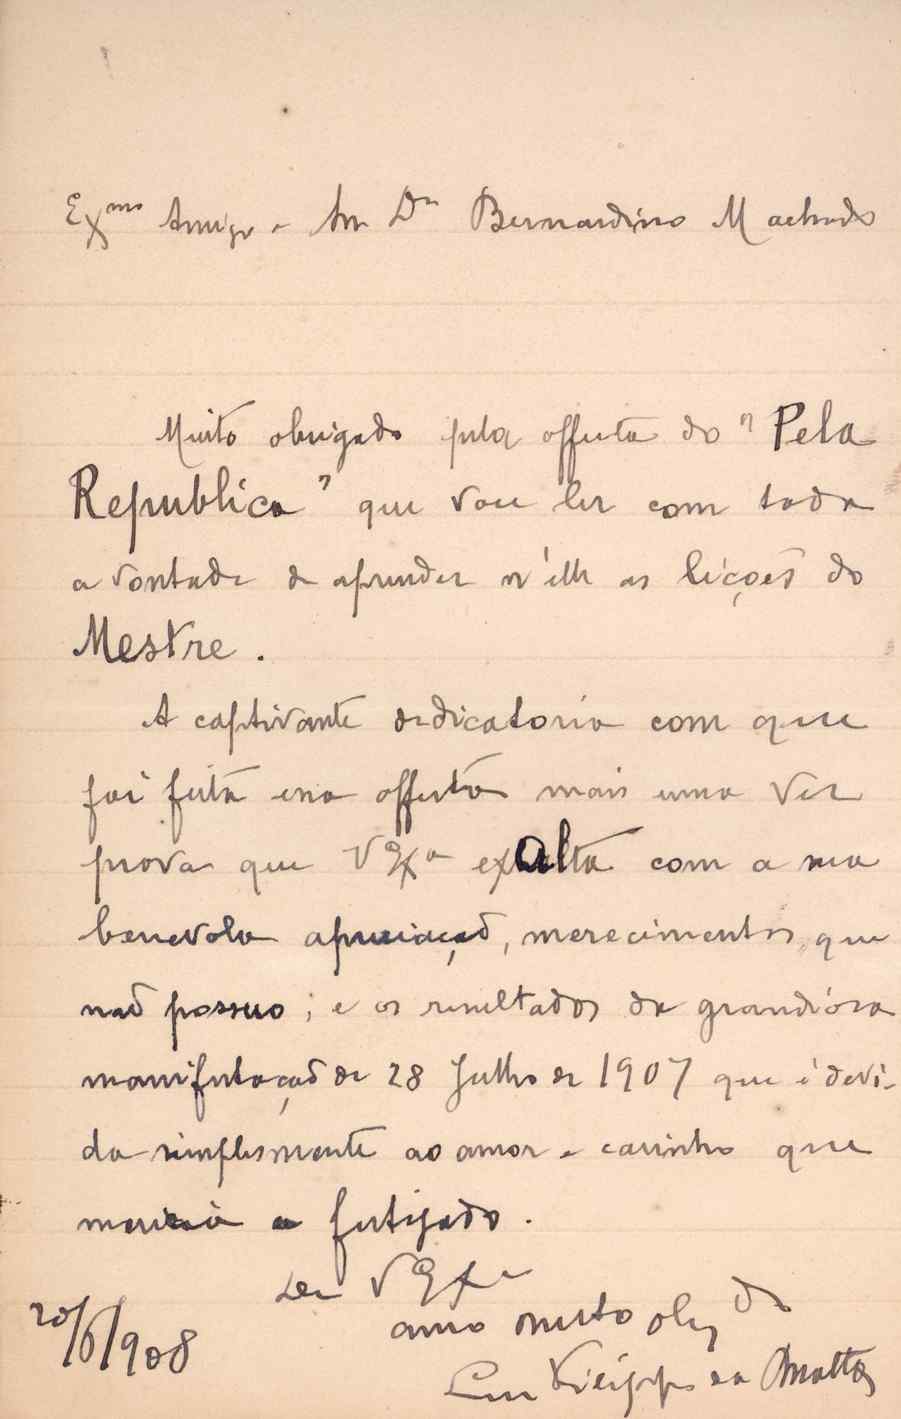 Exmo Amigo e Snr Dr Bernardino Machado
Muito obrigado pela offerta do "Pela
Republica" que vou ler com toda
a vontade de aprender n'elle as lições do
Mestre.
A captivante dedicatoria com que
foi feita essa offerta mais uma vez
prova que V Exa exalta com a sua
benevola apreciação, merecimentos que
não possuo; e os resultados da grandiósa
manifestação de 28 Julho de 1907 que é devi-
da simplesmente ao amor e carinho que
merecia o festejado.
De V Exa
amo muito obgdo
Luiz Filippe da Matta
20/6/908